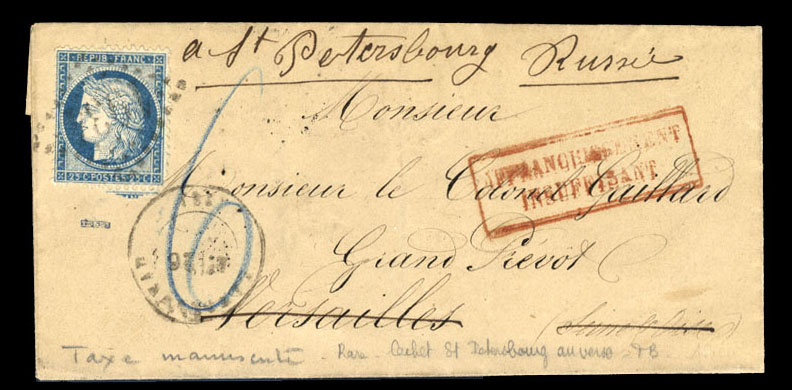 a St Petersbourg Russie
REPUB. FRANC.
25 C. POSTES 25 C.
Monsieur
AFFRANCHISSEMENT
INSUFFISANT
Monsieur le Colonel Gaillard
Grand Prévot
Versailles
Taxe manuscrite - Rare - Cachet St Petersbourg au verso - TB